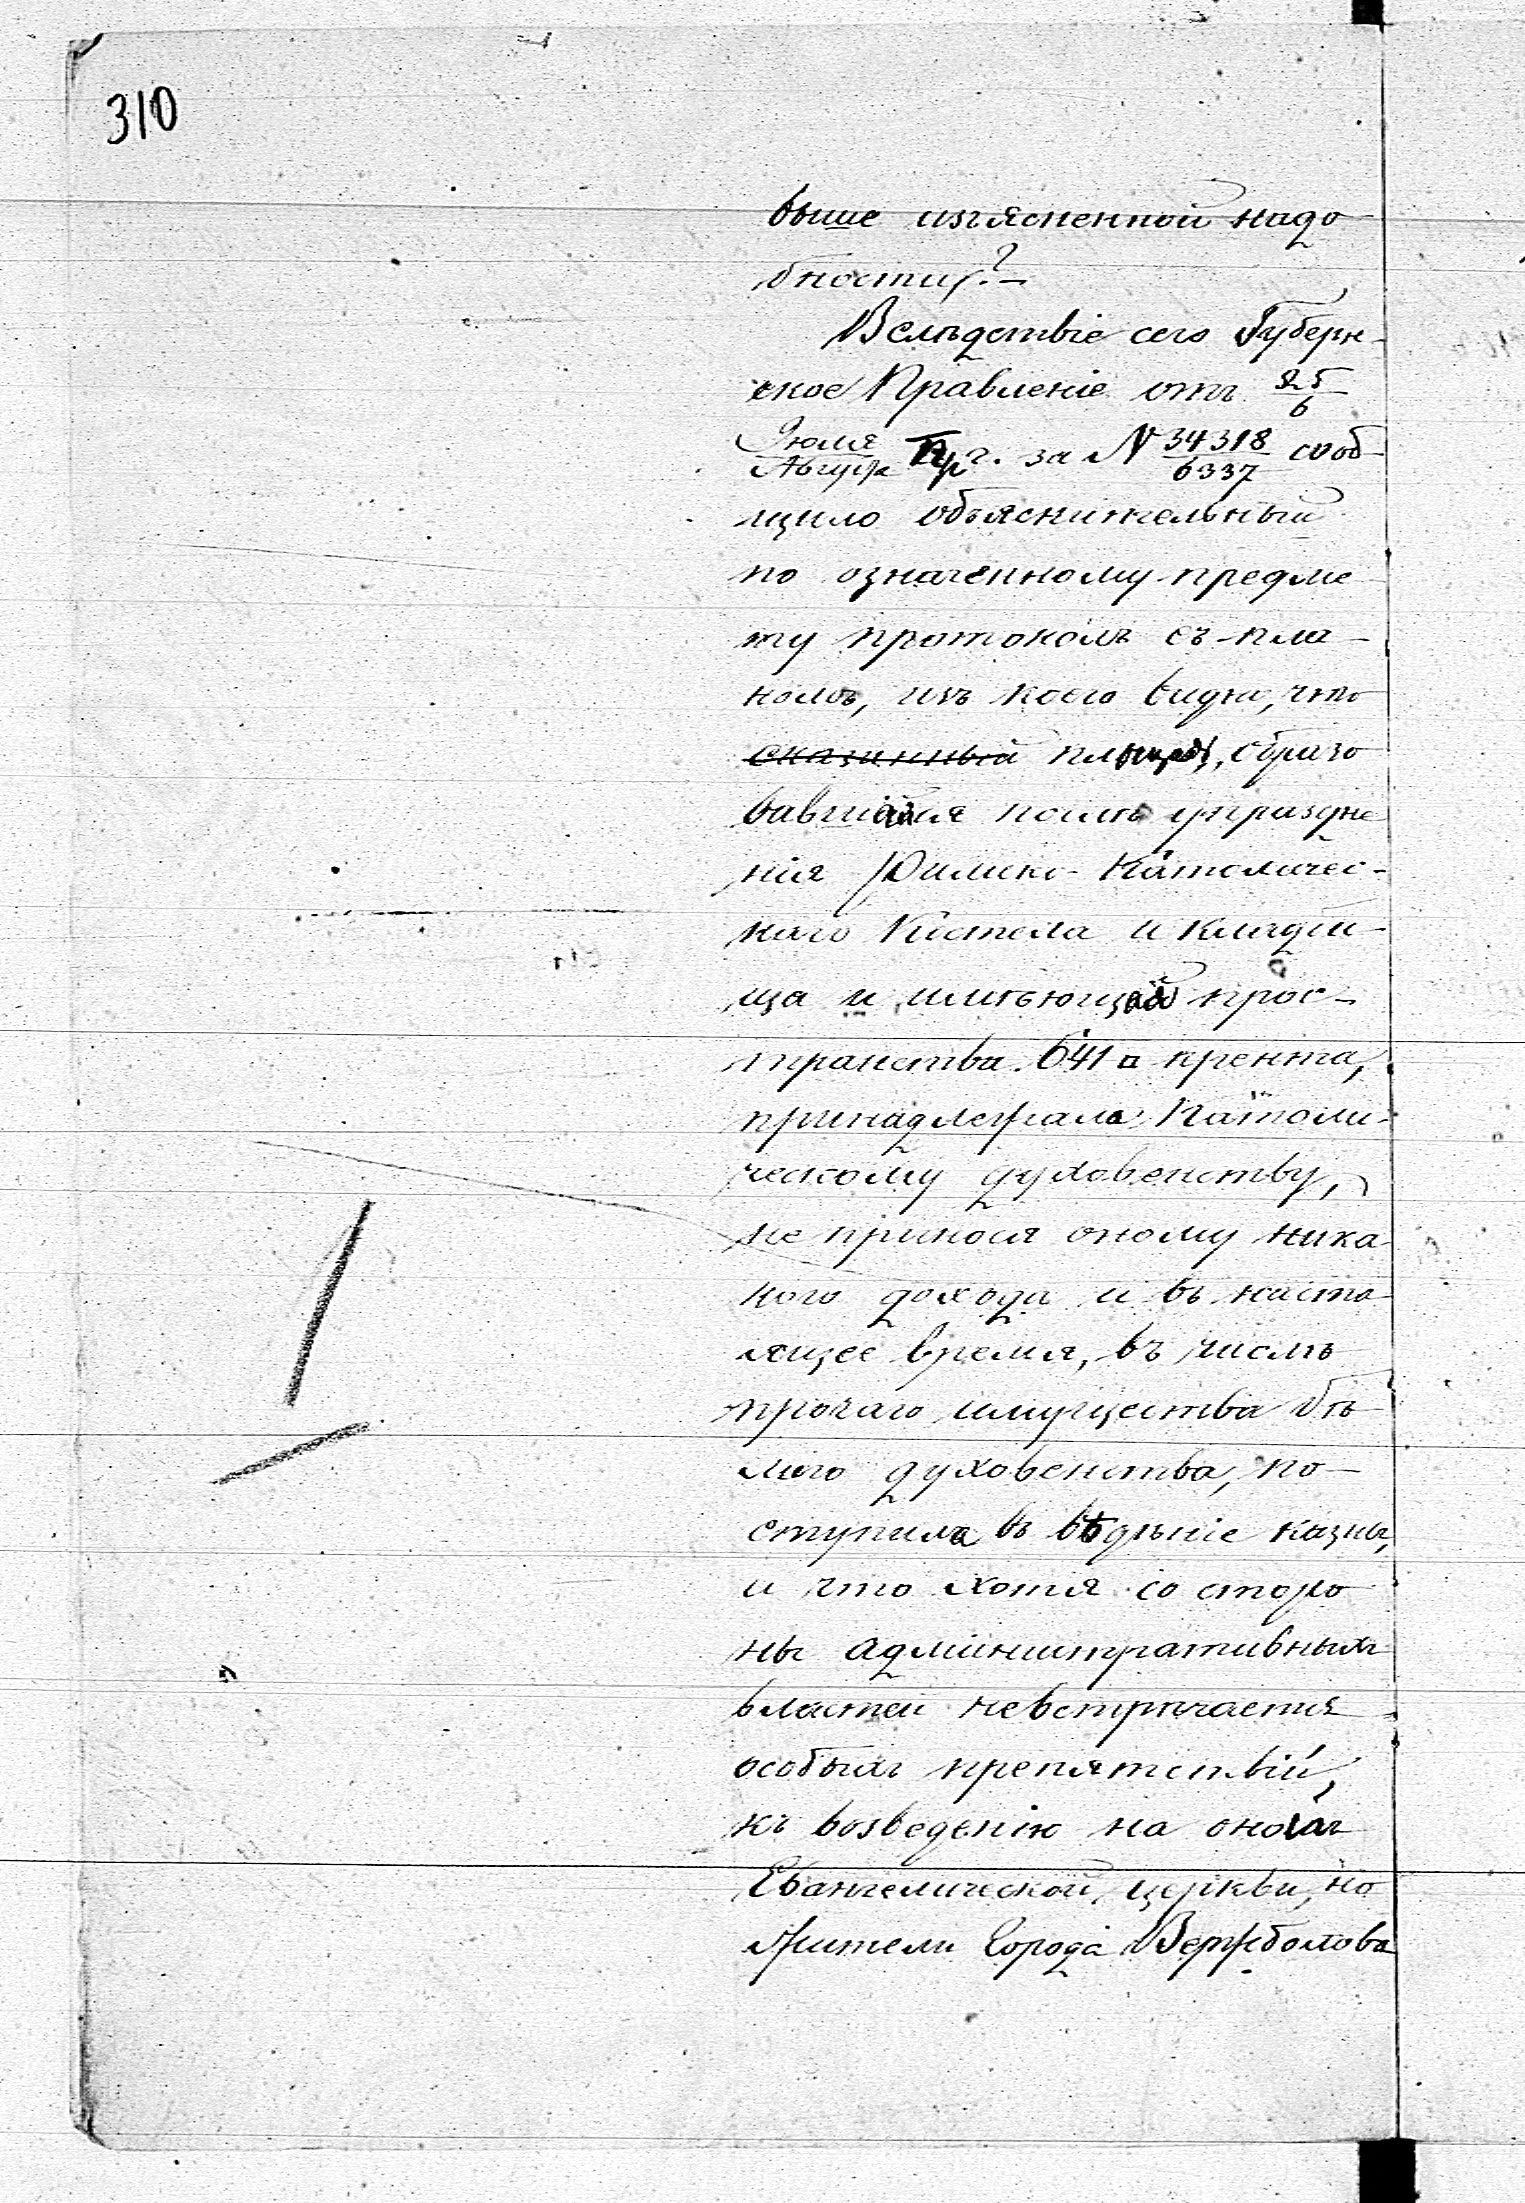 310
выше изъясненной надо
бности?—
Вслѣдствіе сего Губерн-
ское Правленіе отъ 25/6
Іюля/Августа г. за N 34318/6337 сооб
щило объяснительный
по означенному предме
ту протоколъ съ пла-
номъ, изъ коего видно, что
сказанный площадь, образо
вавшаяся послѣ упраздне
нія Римско-Католичес-
каго Костела и кладби-
ща и имѣющая прос-
транства 641 □ прента,
принадлежала Католи-
ческому духовенству,
не принося оному ника
кого дохода и въ насто-
ящее время, въ числѣ
прочаго имущества бѣ
лаго духовенства, по-
ступила въ вѣдѣніе казны,
и что хотя со сторо
ны административныхъ
властей невстрѣчается
особыхъ препятствій,
къ возведенію на оной
Евангелической церкви, но
жители Города Вержболова